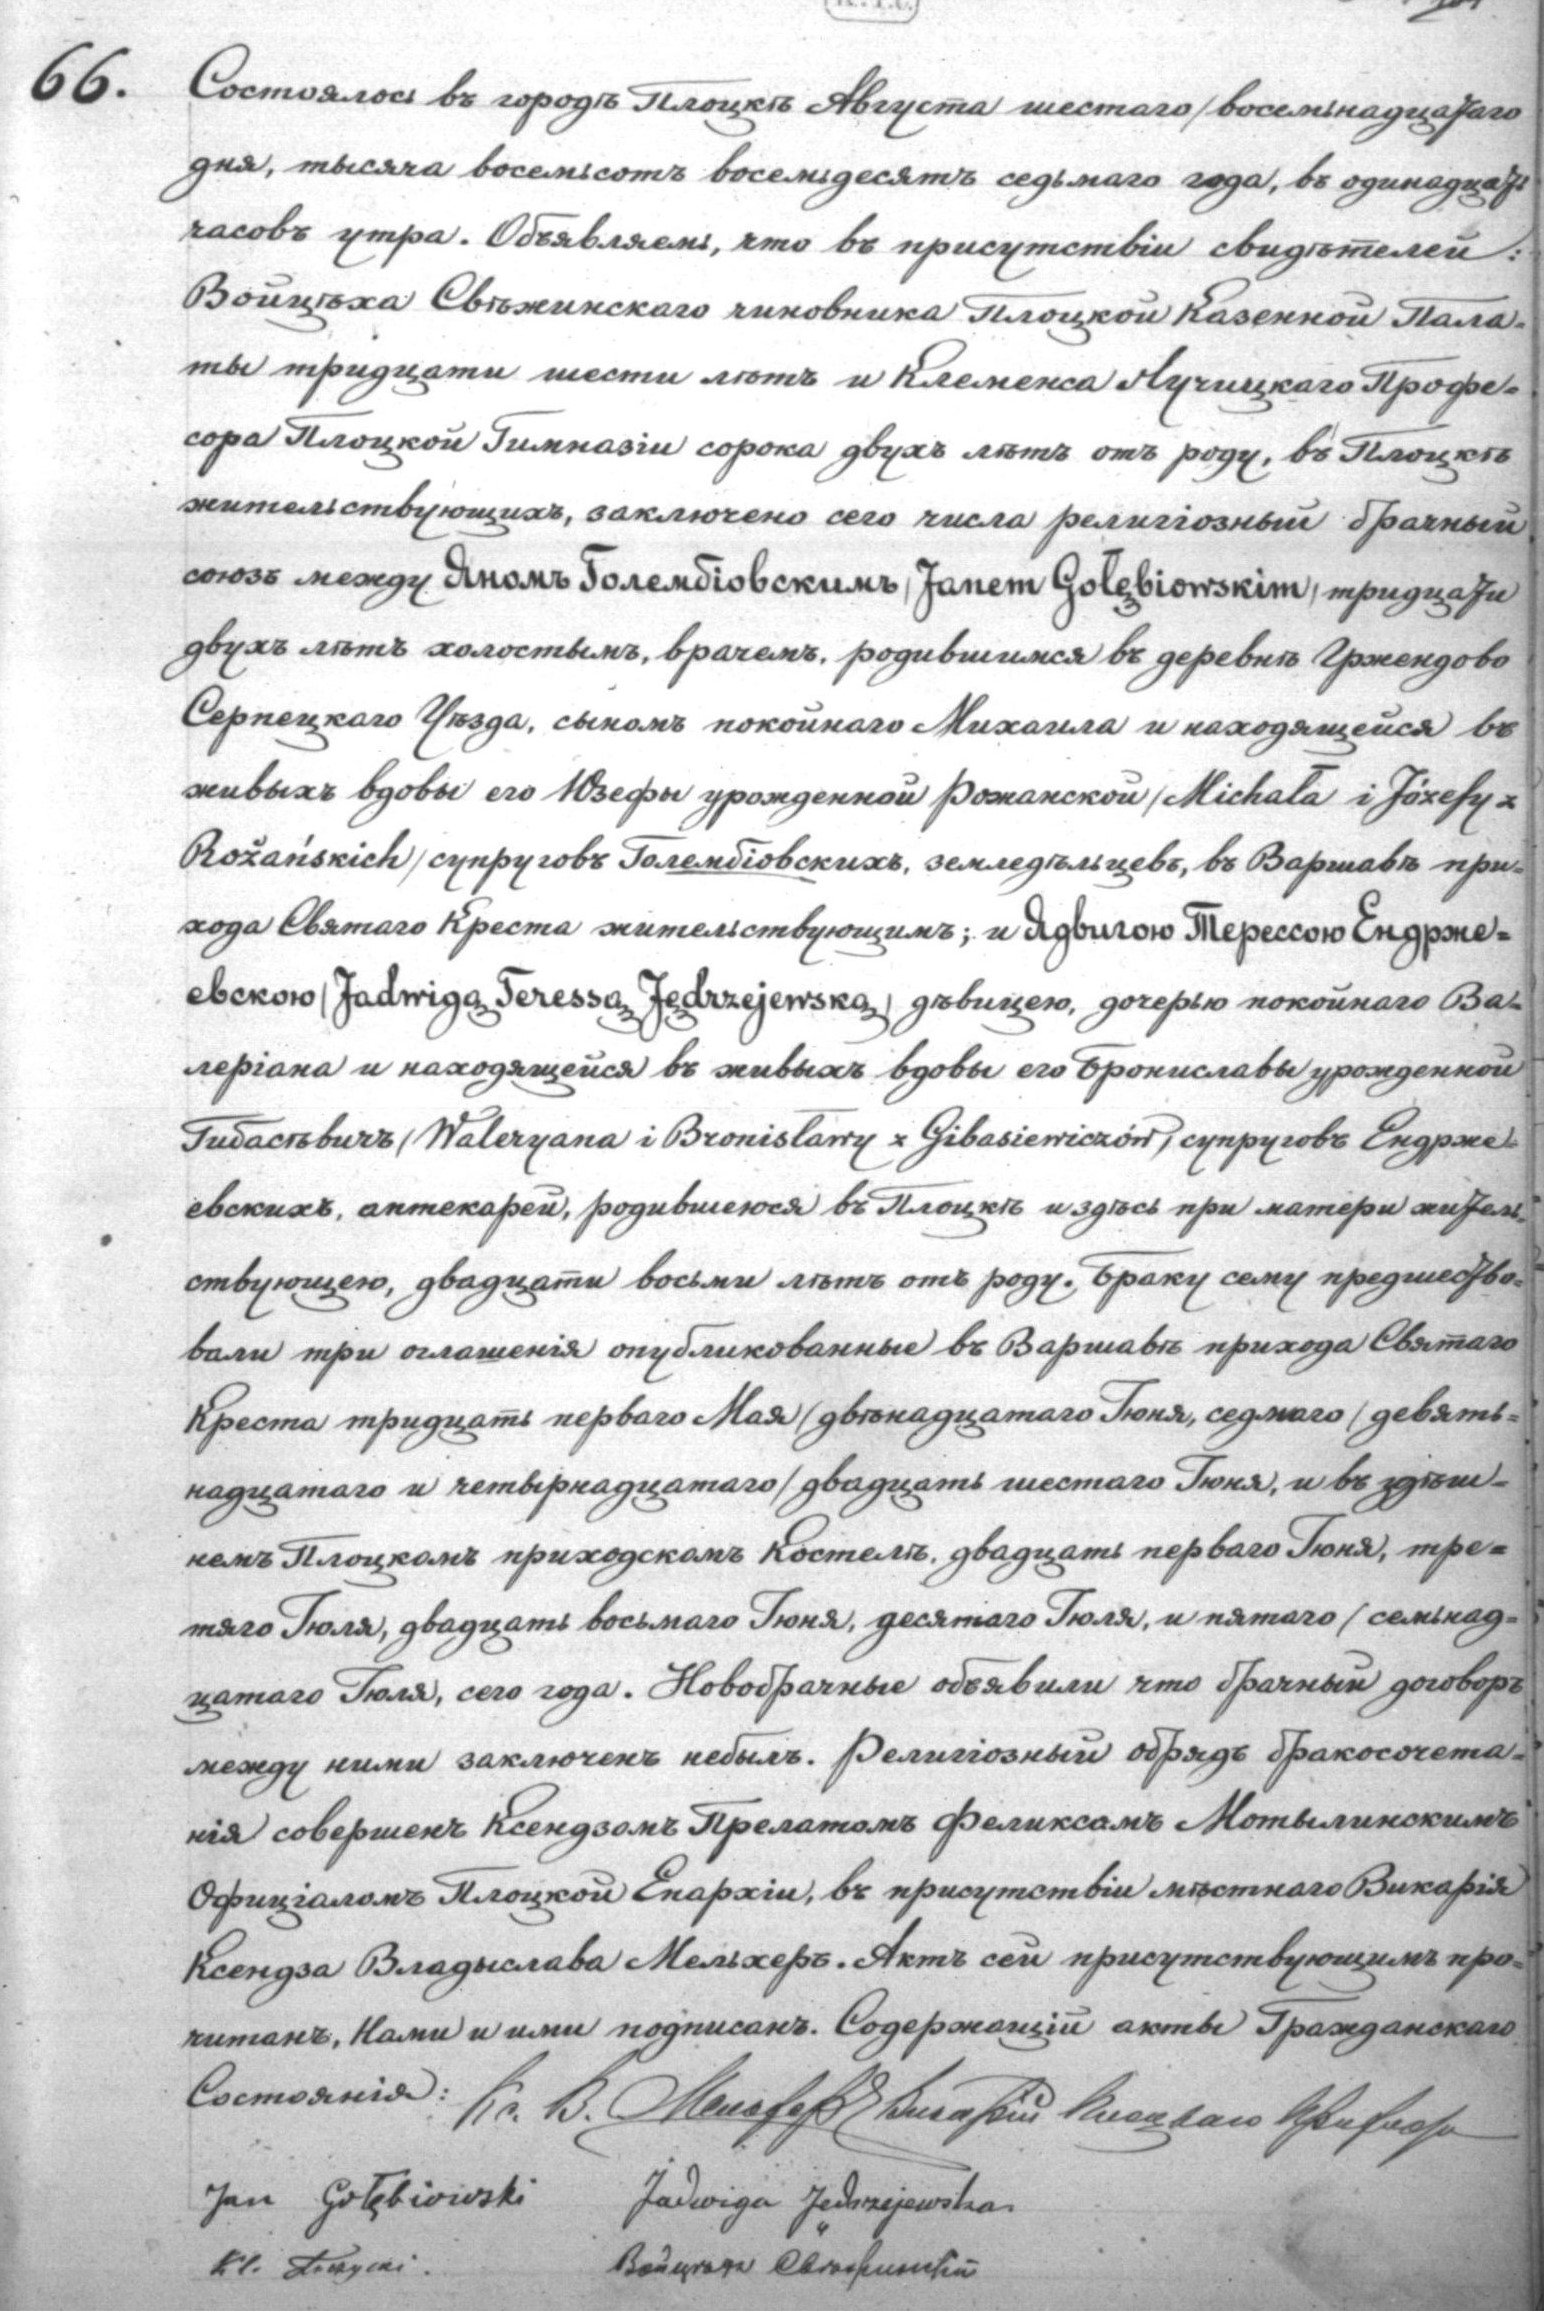 66. Состоялось въ городѣ Плоцкѣ Августа шестаго / восемьнадцатаго
дня, тысяча восемьсотъ восемьдесятъ седьмаго года, въ одинадцать
часовъ утра. Объявляемъ, что въ присутствіи свидѣтелей:
Войцѣха Свѣжинскаго чиновника Плоцкой Казенной Пала-
ты тридцати шести лѣтъ и Клеменса Лучицкаго Профе-
сора Плоцкой Гимназіи сорока двухъ лѣтъ отъ роду, въ Плоцкѣ
жительствующихъ, заключено сего числа религіозный брачный
союзъ между Яномъ Голембіовскимъ / Janem Gołębiowskim / тридцати
двухъ лѣтъ холостымъ, врачемъ, родившимся въ деревнѣ Гржендово
Серпецкаго Уѣзда, сыномъ покойнаго Михаила и находящейся въ
живыхъ вдовы его Юзефы урожденной Рожанской / Michała i Józefy z
Rożańskich / супруговъ Голембіовскихъ, земледѣльцевъ, въ Варшавѣ при-
хода Святаго Креста жительствующимъ; и Ядвигою Терессою Ендрже-
евскою / Jadwigą Teressą Jędrzejewską / дѣвицею, дочерью покойнаго Ва-
леріана и находящейся въ живыхъ вдовы его Брониславы урожденной
Гибасѣвичъ / Waleryana i Bronisławy z Gibasiewiczów / супруговъ Ендрже-
евскихъ, аптекарей, родившеюся въ Плоцкѣ и здѣсь при матери житель-
ствующею, двадцати восьми лѣтъ отъ роду. Браку сему предшество-
вали три оглашенія опубликованные въ Варшавѣ прихода Святаго
Креста тридцать перваго Мая / двѣнадцатаго Іюня, седмаго / девять-
надцатаго и четырнадцатаго / двадцать шестаго Іюня, и въ здѣш-
немъ Плоцкомъ приходскомъ Костелѣ, двадцать перваго Іюня, тре-
тяго Іюля, двадцать восьмаго Іюня, десятаго Іюля, и пятаго / семьнад-
цатаго Іюля, сего года. Новобрачные объявили что брачный договоръ
между ними заключенъ небылъ. Религіозный обрядъ бракосочета-
нія совершенъ Ксендзомъ Прелатомъ Феликсомъ Мотылинскимъ
Офиціаломъ Плоцкой Епархіи, въ присутствіи мѣстнаго Викарія
Ксендза Владыслава Мельхеръ. Актъ сей присутствующимъ про-
читанъ, Нами и ими подписанъ. Содержащій акты Гражданскаго
Состоянія: Кс. В. Мельхеръ Викарій Плоцкаго Прихода
Jan Gołębiowski Jadwiga Jędrzejewska
Kl. Łuczycki. Войцѣхъ Свѣжинскій